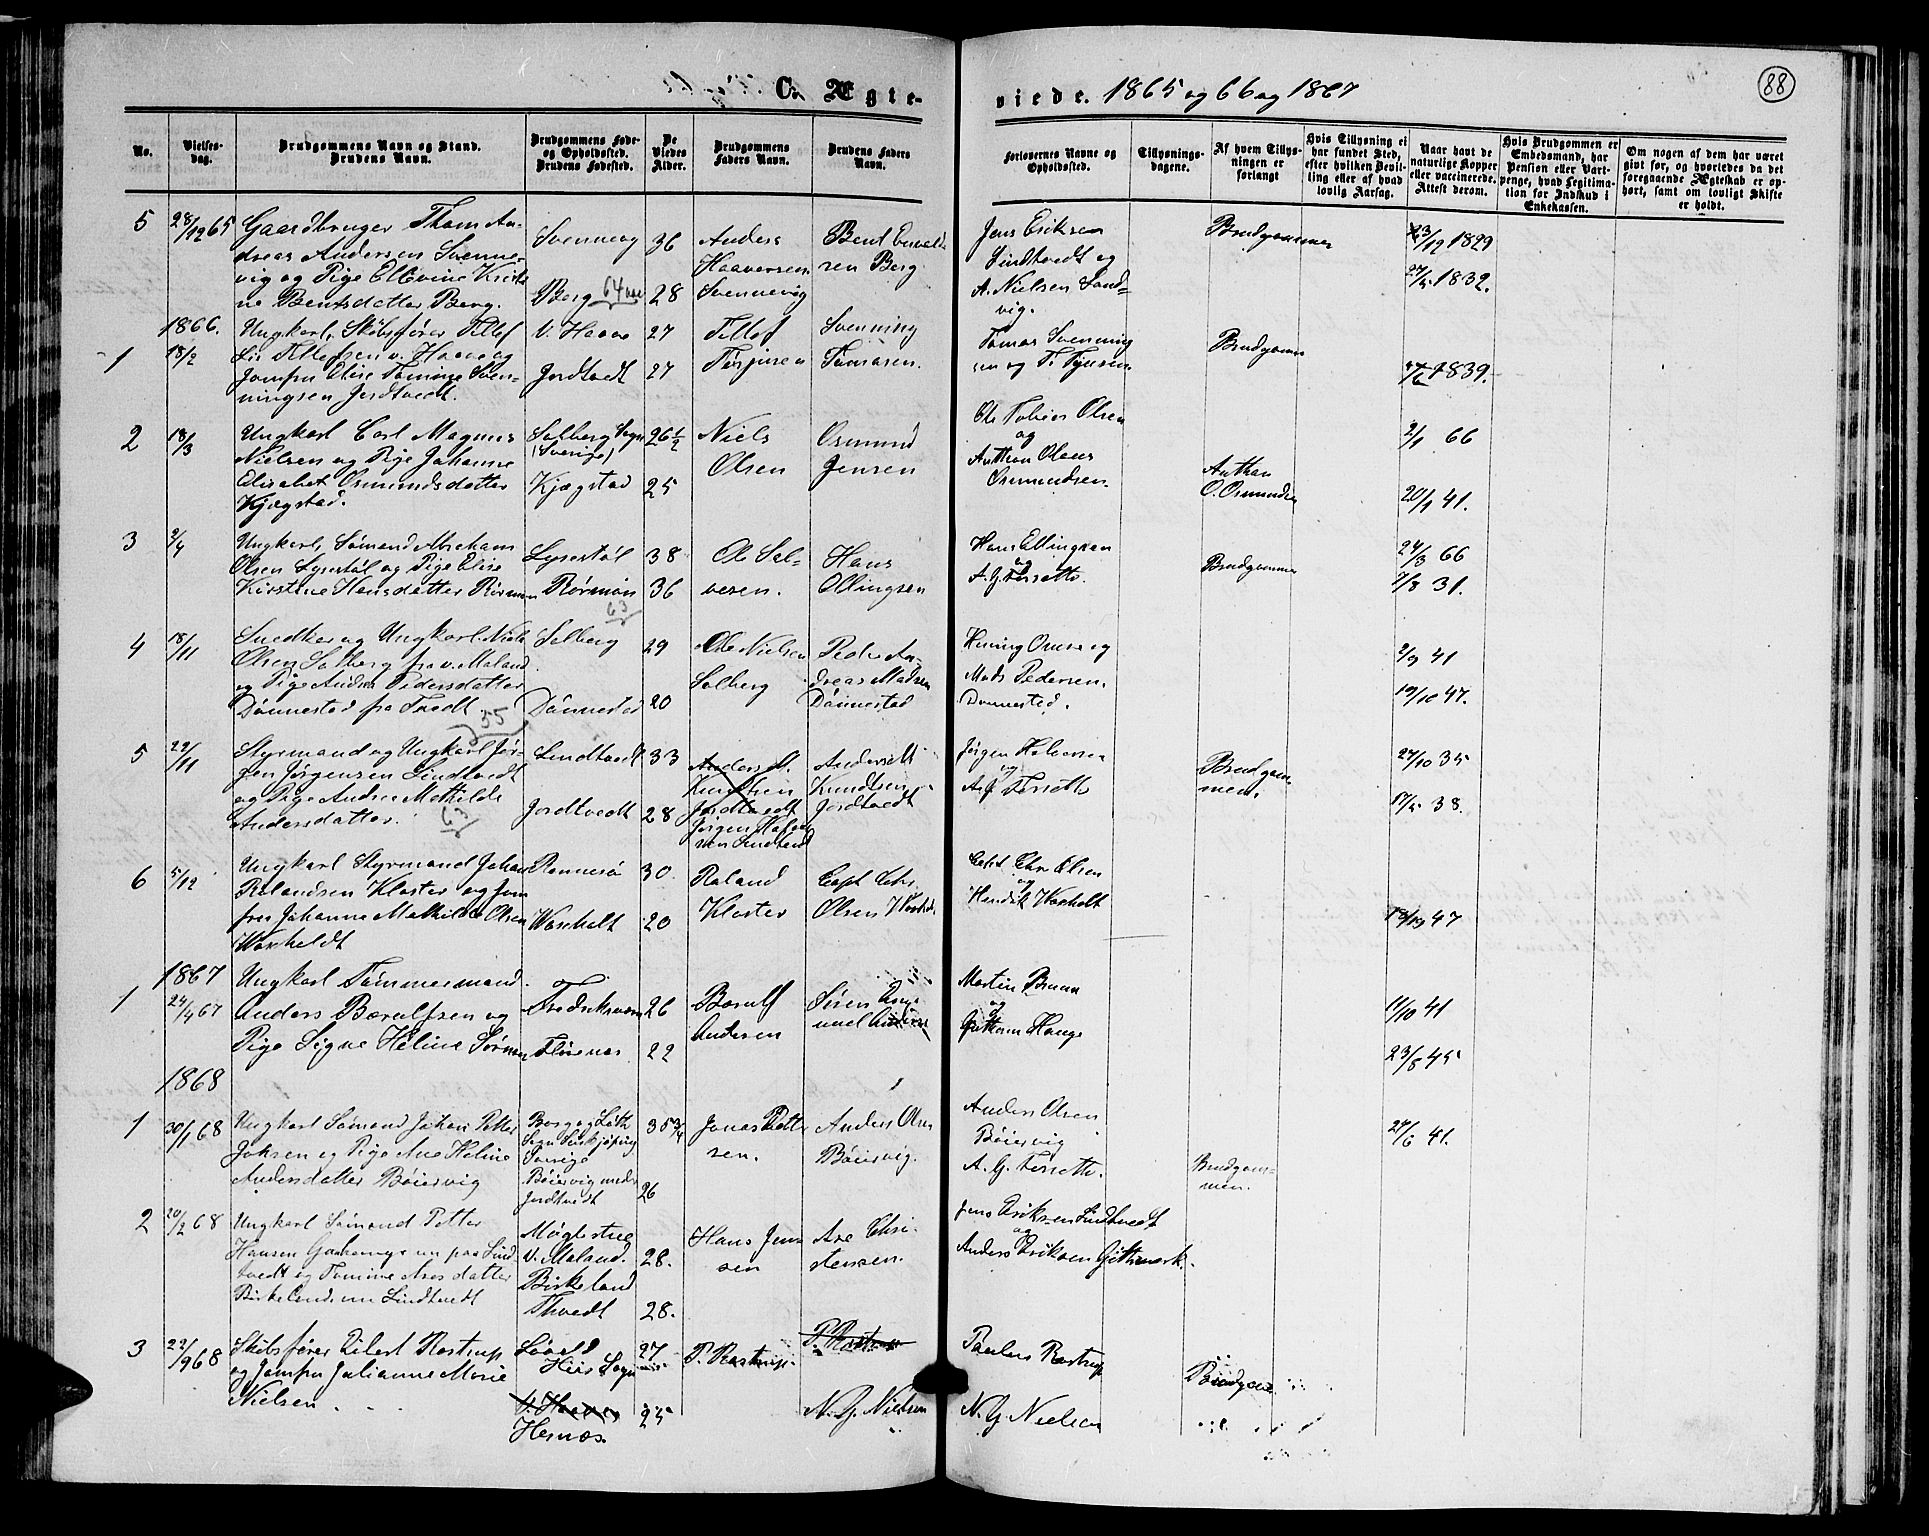 C. Ægteviede. 1865 og 66 og 1867
88
No.
Vielsesdag.
Brudgommens Navn og Stand. Brudens Navn.
Brudgommens Føde- og Opholdssted. Brudens Fødested.
De Viedes Alder.
Brudgommens Faders Navn.
Brudens Faders Navn.
Forlovernes Navne og Opholdssted.
Tillysningsdagene.
Af hvem Tillysningen er forlangt
Hvis Tillysning ei har fundet Sted, efter hvilken Bevilling eller af hvad lovlig Aarsag.
Naar havt de naturlige Kopper eller vaccinerede. Attest derom.
Hvis Brudgommen er Embedsmand, har Pension eller Vartpenge, hvad Legitimation for Indskud i Enkekassen.
Om nogen af dem har været gift før, og hvorledes da det foregaaende Ægteskab er ophørt, samt om lovligt Skifte er holdt.
5 28/12 65 Gaardbruger Thom An-
dreas Andersen Svenne-
vig og Pige Ellevine Kirsti-
ne Bentsdatter Berg.
Svennevig 36 Anders
Haavorsen
Svennevig
Berg 28
Jens Eriksen
Lindtvedt og
A. Nielsen Sand-
vig.
Brudgommen
23/12 1829
1832.
1866.
1 18/2 Ungkarl, Skibsfører Tellef
Tellefsen v. Haave og
Jomfru Elise Tomine Sven-
ningsen Jordtvedt.
V. Haave 27 Tellef Svenning
Jordtvedt 27 Terjusen Tomasen.
Tomas Svenning
sen og T. Terjusen
Brudgommen
1839.
2 18/3 Ungkarl Carl Magnus
Nielsen og Pige Johanne
Elisabet Osmundsdatter
Kjægstad.
Solberg Sogn
(Sverige)
Kjægstad
26 1/2
25
Niels
Olsen
Osmund
Jensen
Ole Tobias Olsen
og
Anthon Olaus
Osmundsen
Anthon
O. Osmundsen
2/1 66
20/9 41.
3 2/4 Ungkarl, Sømand Abraham
Olsen Lyrestøl og Pige Elise
Kirstine Hansdatter Rørmon
Lyrestøl 38
Rørmon 36
63
Ole Sal-
vesen.
Hans
Ellingsen
Hans Ellingsen
og
A. G. Tersette.
Brudgommen
24/3 66
7/8 31.
4 18/11 Snedker og Ungkarl Niels
Olsen Solberg fra v. Moland
og Pige Andrea Pedersdatter
Dønnestad fra Tvedt
Solberg 29
Dønnestad 20
Ole Nielsen
Solberg
Peder An-
dreas Madsen
Dønnestad
Mads Pedersen
Dønnestad.
2/9 41
19/10 47.
35
5 22/11 Styrmand og Ungkarl Jør-
gen Jørgensen Lindtvedt
og Pige Andrea Mathilde
Andersdatter.
63
Lindtvedt 33
Jordtvedt 28
Anders A.
Knudsen
Jordtvedt
Jørgen Halvor
sen Lindtvedt
Anders A
Knudsen
Jordtvedt
Jørgen Halvorsen
og
A. G. Tersette
Brudgom-
men.
27/10 35
17/5 38.
6 5/12 Ungkarl Styrmand Johan
Rolandsen Kloster og Jom
fru Johanne Mathilde Olsen
Woxholdt
Rannesø 30.
Woxholt 20
Roland
Kloster
Capt Chr.
Olsen Woxholt
Capt Chr Olsen
og
Hendrik Woxholt
47
1867
1 24/4 67 Ungkarl Tømmermand
Anders Borulfsen og
Pige Signe Heline Sørensen
Fredriksværn 26
Flosenæs 22
Borulf
Andersen
Søren
Martin Bruun
og
Guttorm Hauge
11/10 41
23/5 45
1868
1 30/1 68 Ungkarl Sømand Johan Petter
Johsen og Pige Ane Heline
Andersdatter Bøiesvig
Borg og Løth
Sogn Linkjøping
Sverige
Bøiesvig under
Jordtvedt
35 3/4
26
Jonas Petter
sen.
Anders Olsen
Bøiesvig.
Anders Olsen
Bøiesvig
A. G. Tersette.
Brudgom-
men.
27/6 41.
2 20/2 68 Ungkarl Sømand Petter
Hansen nu paa Lind
tvedt og Tomine Aresdatter
Birkeland nu Lindtvedt
Møglestue
V. Moland. 28.
Birkeland
Thvedt 28.
Hans Jen
sen
Are Chri-
stensen.
Jens Eriksen Lindtvedt
og
Anders Eriksen Gitmark.
3 22/9 68 Skibsfører Eilert Rostrup
og Jomfru Julianne Marie
Nielsen
Løvold
Heis Sogn
V. Haave
Hesnæs.
27
25
P. Rostrup.
P. Rostrup
N. G. Nielsen
Paulus Rostrup
N. G. Nielsen
Brudgom